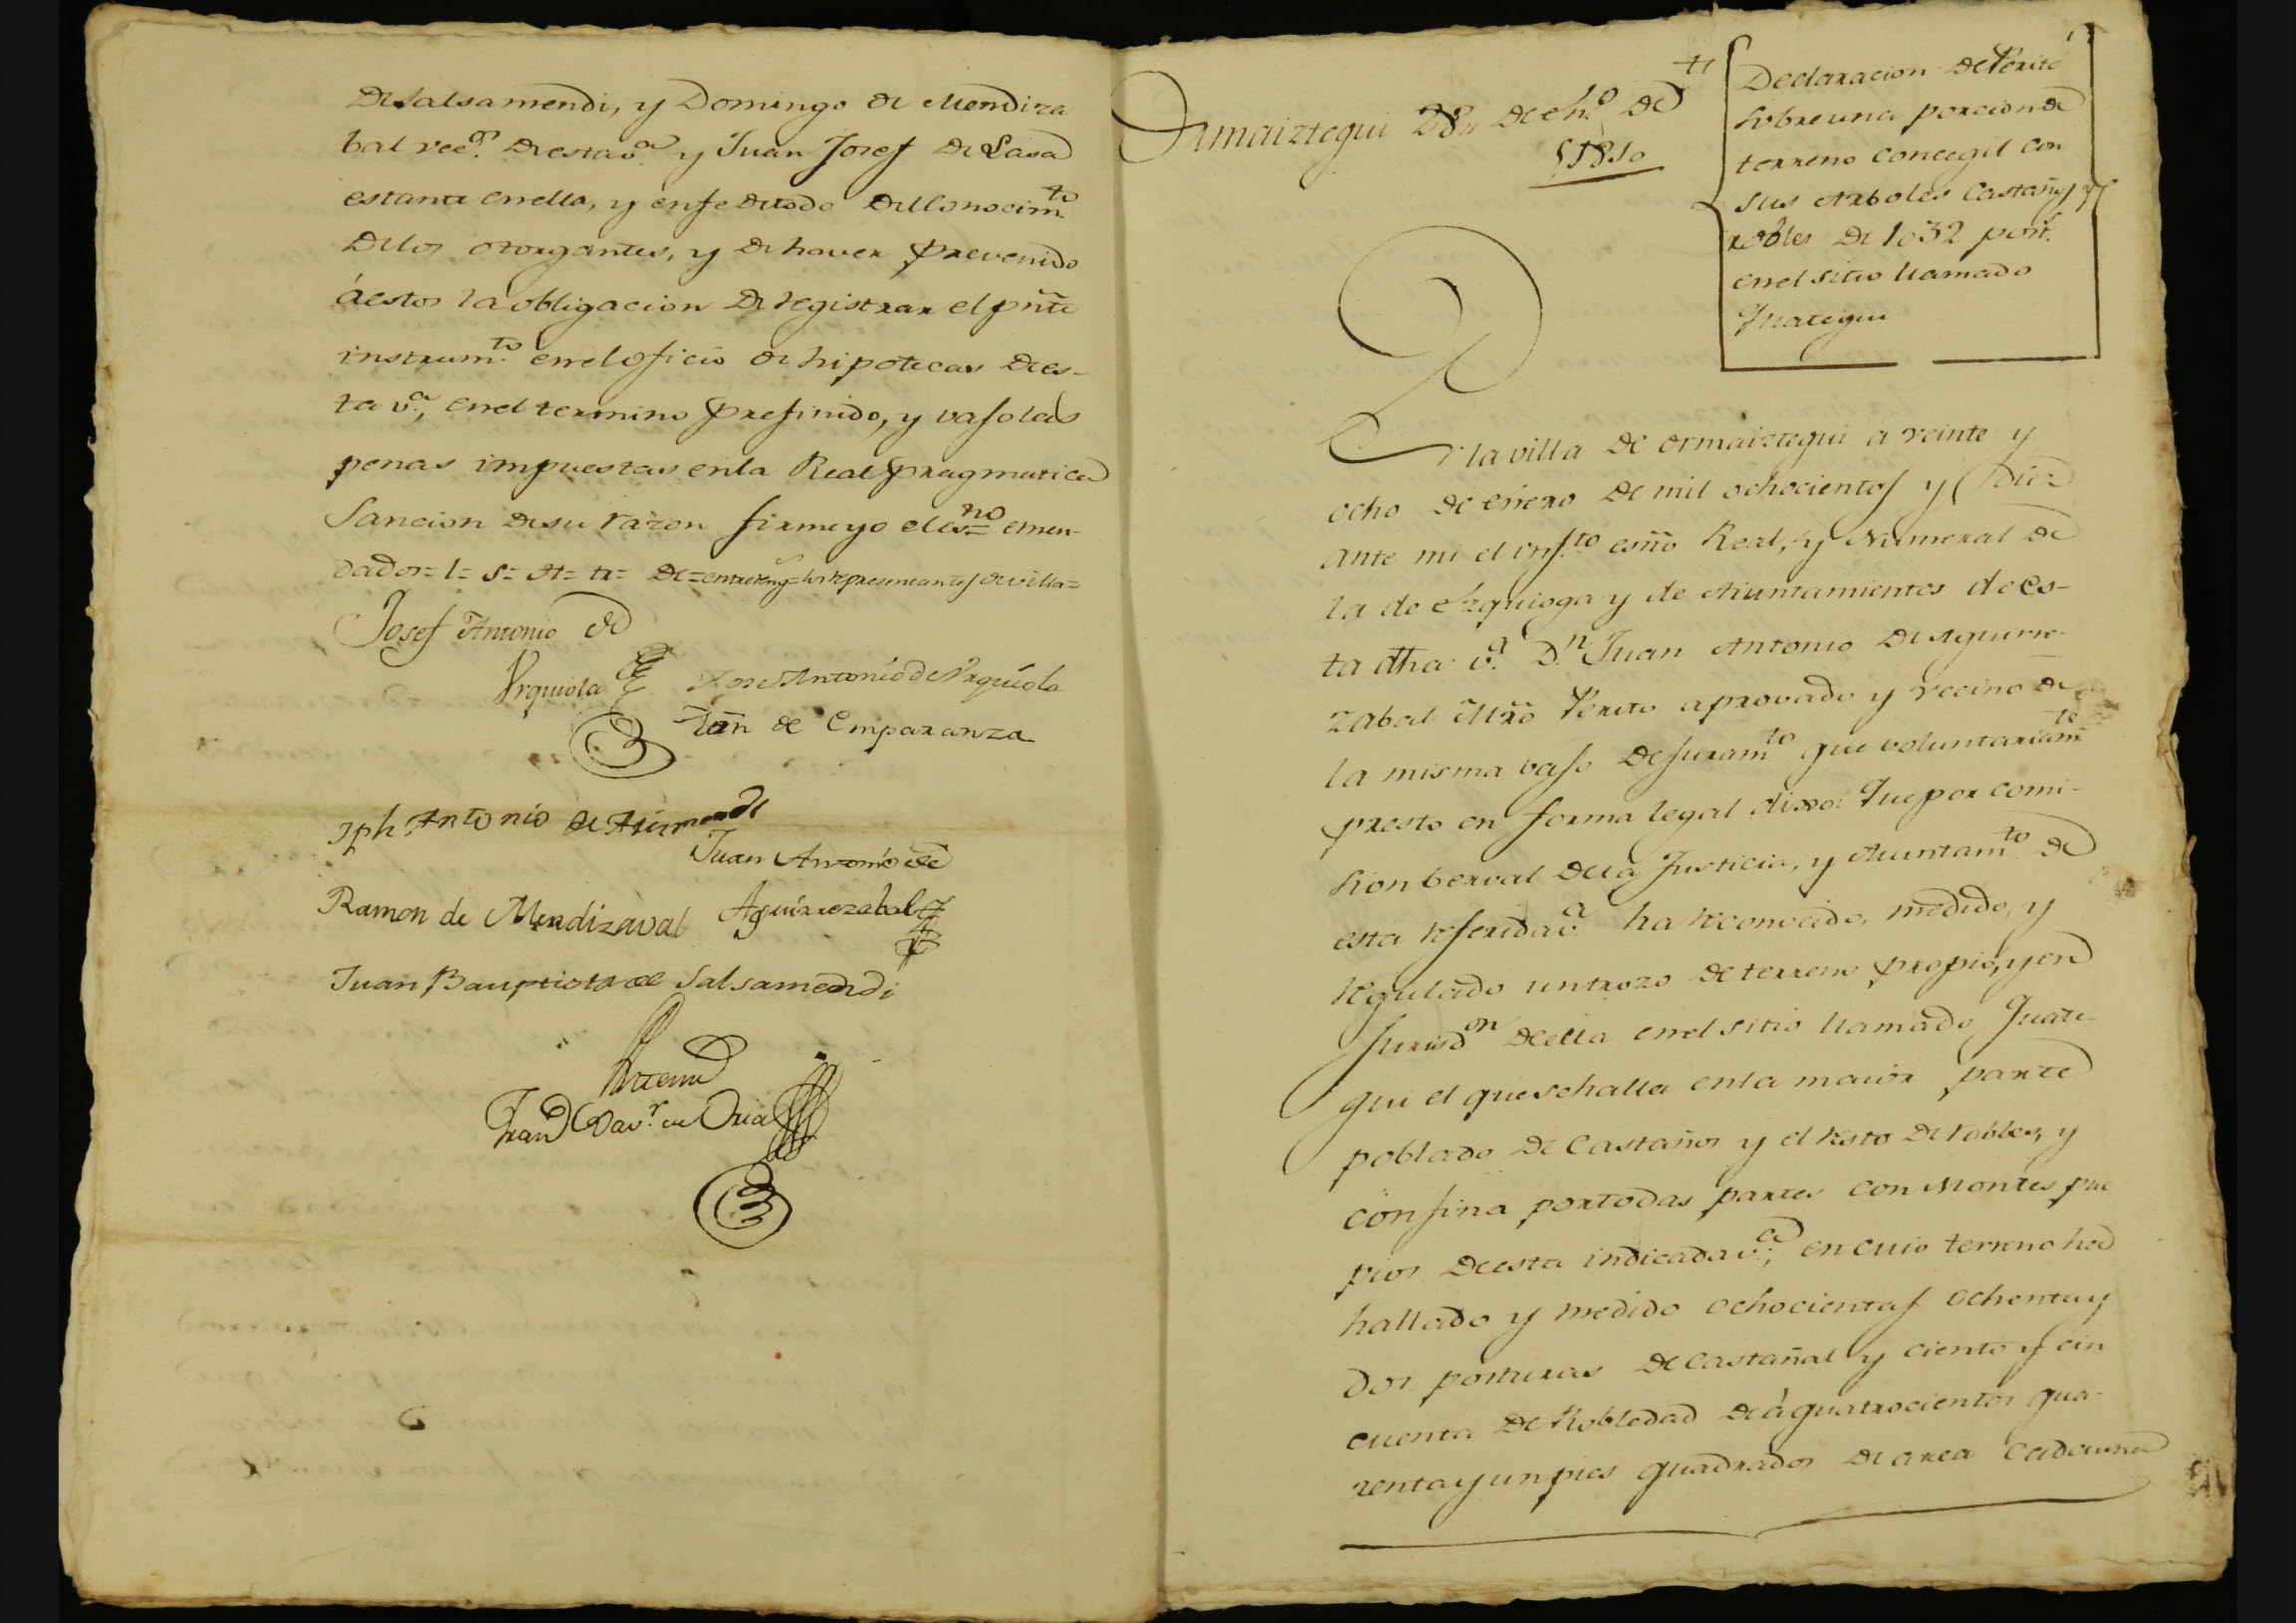 de Salsamendi, y Domingo de Mendiza
bal vec.ˢ de esta v.ᵃ y Juan Josef de Lasa
estante en ella, y en fe de todo del conocim.ᵗᵒ
de los otorgantes, y de haver prevenido
á estos la obligacion de registrar el pñte
instrum.ᵗᵒ en el oficio de hipotecas de es-
ta v.ᵃ, en el termino prefinido, y vajo las
penas impuestas en la Real pragmatica
Sancion de su razon firme yo el es.ⁿᵒ= emen-
dador= l= s= A= tr= de= entrereng.ˢ= los representantes de villa=
Josef Antonio de
Urquiola
Jose Antonio de Urquiola
Jũn de Emparanza
Jph Antonio de
Juan Antonio de
Aguirrezabal
Ramon de Mendizaval
Juan Bauptista de Salsamendi
Ante mi
Fran.ᶜᵒ Xav.ʳ de Oria
Ormaiztegui 28,, de en.º de
1810
Declaracion de Perito
sobre una porcion de
terreno concegil con
sus Arboles Castaños y
robles de 1032 post.ˢ
en el sitio llamado
Yuategui
En la villa de Ormaiztegui á veinte y
ocho de enero de mil ochocientos y diez
ante mi el infr.ᵗᵒ esñõ Real, y Numeral de
la de Ezquioga y de Aiuntamientos de es-
ta dha v.ᵃ D.ⁿ Juan Antonio de Aguirre-
zabal Mrõ Perito aprovado y vecino de
la misma vajo de juram.ᵗᵒ que voluntariam.ᵗᵉ
presto en forma legal dixo: Que por comi-
sion berval de la Justicia, y Aiuntam.ᵗᵒ de
esta referida v.ᵃ ha reconocido, medido, y
regulado un trozo de terreno propio, y en
Jurisd.ᵒⁿ de ella en el sitio llamado Yuate-
gui el que se halla en la maior parte
poblado de Castaños y el resto de robles, y
confina por todas partes con Montes pro
pios de esta indicada v.ᵃ; en cuio terreno ha
hallado y medido ochocientas ochenta y
dos posturas de castañal y ciento y cin
cuenta de Robledad de á quatrocientos qua-
renta y un pies quadrados de area cada una